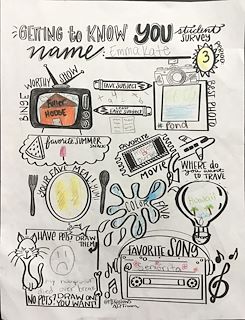 GETTING to KNOW YOU student SURVEY
name: Emma Kate
BINGE WORTHY SHOW
Fuller HOUSE
FAVE SUBJECT
LEAST FAVE SUBJECT
3
BEST PHOTO
#Pond
favorite SUMMER SNACK
FAVORITE MOVIE
WHERE do you want to TRAVEL
YOUR FAVE MEAL? YUM!
COLOR FAVE
Hawaii
HAVE PETS? DRAW THEM!
over break
NO PETS? DRAW ONE YOU WANT!
FAVORITE SONG
Señorita